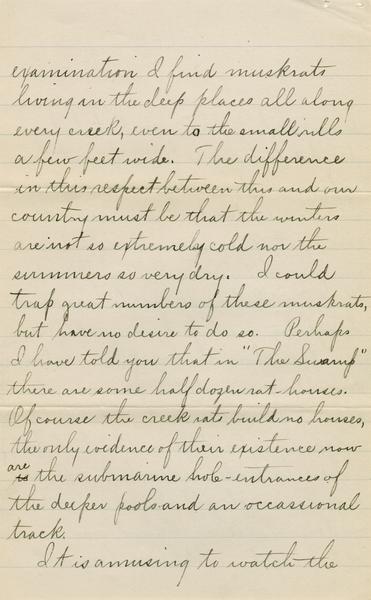 examination I find muskrats
living in the deep places all along
every creek, even to the small rills
a few feet wide. The difference
in this respect between this and our
country must be that the winters
are not so extremely cold nor the
summers so very dry. I could
trap great numbers of these muskrats,
but have no desire to do so. Perhaps
I have told you that in "The Swamp"
there are some half dozen rat-houses.
Of course the creek rats build no houses,
the only evidence of their existence now
are
is the submarine hole-entrances of
the deeper pools and an occassional
track.
It is amusing to watch the